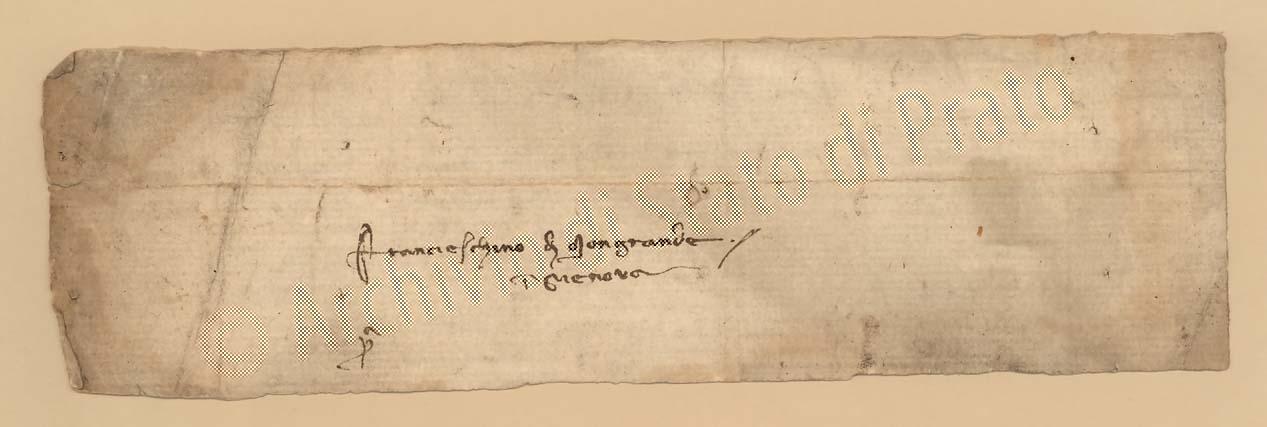 Do
Francieschino di Gongrande
in Gienova
pa
© Archivio di Stato di Prato